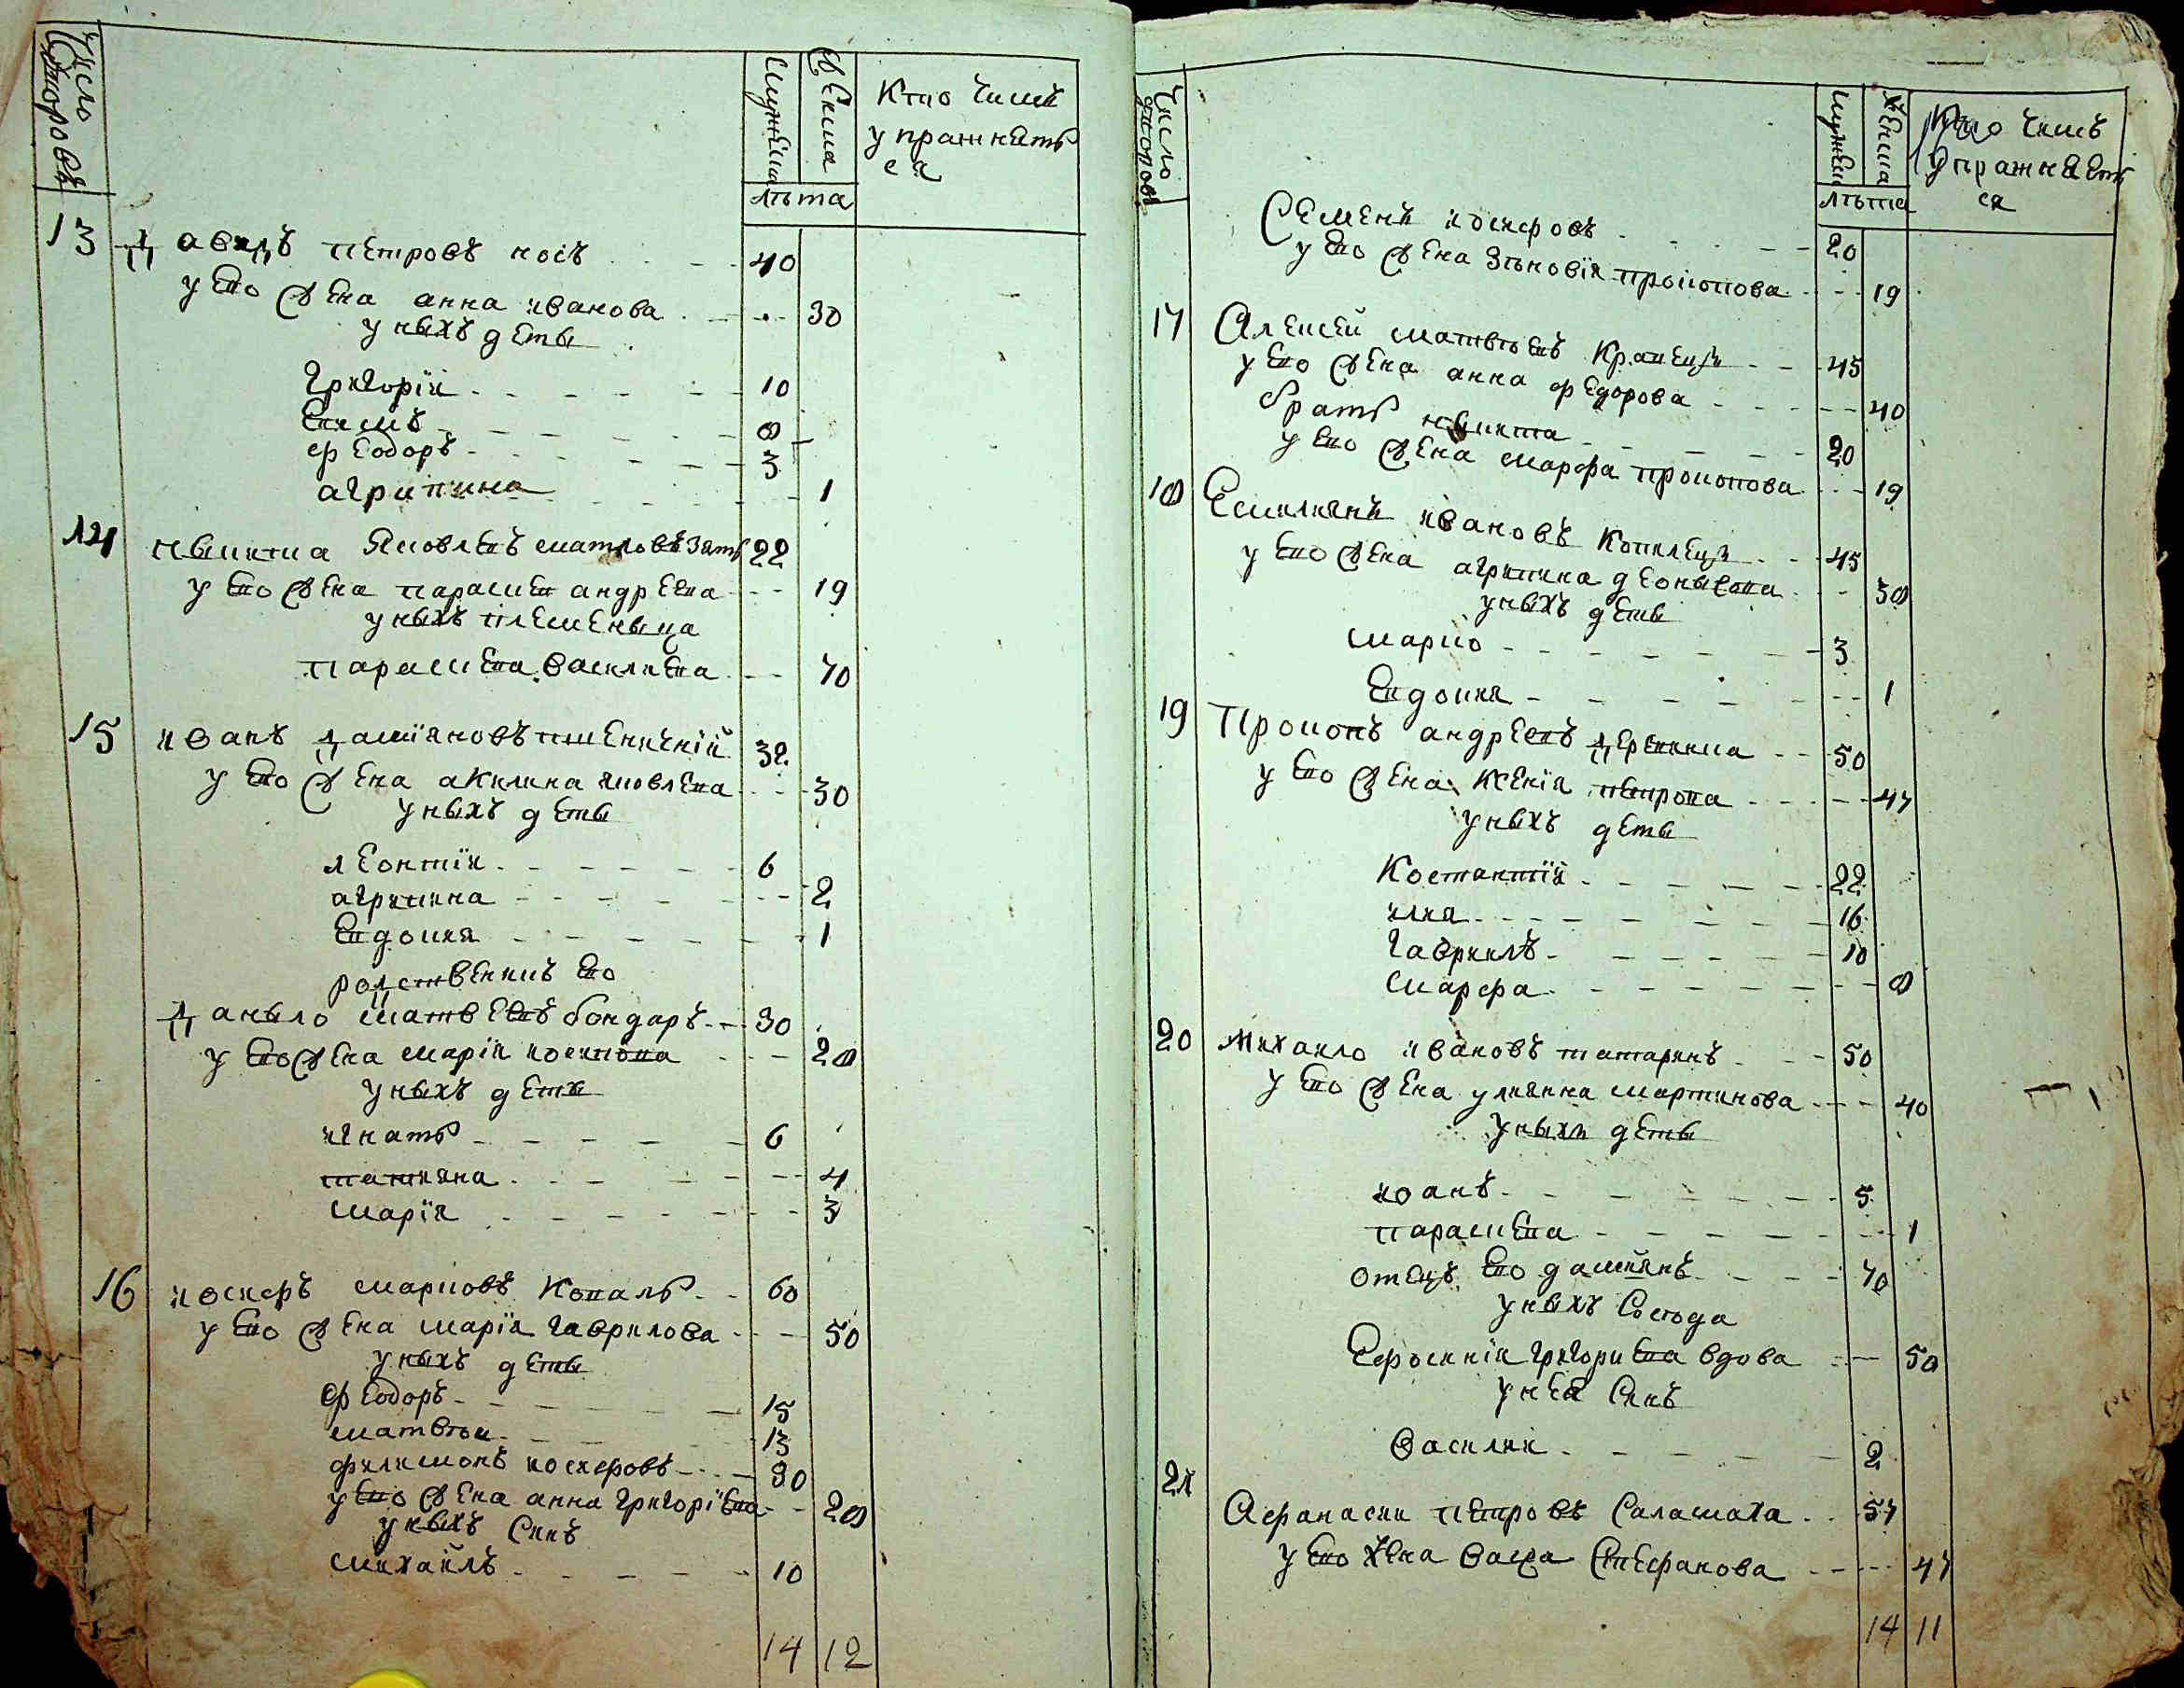 Число дворовъ
Мужеска
Женска
Кто чимъ
упражнять
ся
лѣта
13 Давидъ Петровъ носъ 40
у его жена анна иванова 30
у ныхъ деты
Григорій 10
Екимъ 8
Феодоръ 3
агрипина 1
14 Никита Яковлевъ Зять 22
у его жена параскева андреева 19
у ныхъ племеныца
параскева василиева 70
15 иванъ Даміяновъ пшеничній 32
у его жена акилина яковлева 30
у ныхъ деты
леонтій 6
агрипина 2
Евдокия 1
родственникъ его
Даныло матвеевъ бондаръ 30
у его жена марія иосипова 28
у ныхъ деты
игнатъ 6
татияна 4
марія 3
16 иосифъ марковъ Коваль 60
у его жена марія гаврилова 50
у ныхъ деты
Феодоръ 15
матвѣи 13
филимонъ иосифовъ 30
у его жена анна григоріева 28
у ныхъ Синъ
михаилъ 10
14 12
Число дворовъ
Мужеска
Женска
Кто чимъ
упражняеть
ся
лѣта
Семенъ иосифовъ 20
у его жена Зѣновія прокопова 19
17 Алексей матвѣевъ Кравецъ 45
у его жена анна федорова 40
братъ никита 20
у его жена марфа прокопова 19
18 Емилиянъ ивановъ 45
у его жена агрипина деонысова 38
у ныхъ деты
марко 3
Евдокия 1
19 Прокопъ андреевъ 50
у его жена Ксенія петрова 47
у ныхъ деты
Костантій 22
илия 16
Гавриилъ 10
марфа 8
20 михаило ивановъ татаринъ 50
у его жена улиянна мартинова 40
у ныхъ деты
иоанъ 5
параскева 1
отецъ его дамиянъ 70
у ныхъ Сосѣда
Ефросинія григориева вдова 50
у нея Синъ
Василии 2
21 Афанасии петровъ Саламаха 57
у его жена васса Стефанова 47
14 11